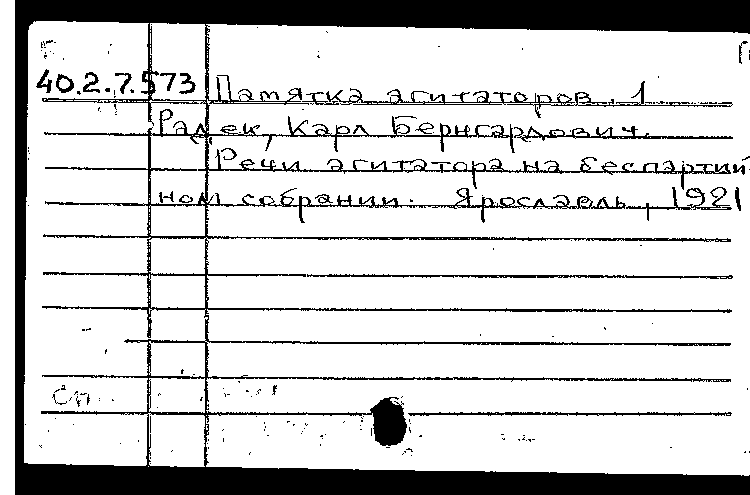 40.2.7.573 Памятка агитаторов. 1
Радек, Карл Бернгардович.
Речи агитатора на беспартий-
ном собрании. Ярославль, 1921
Сп